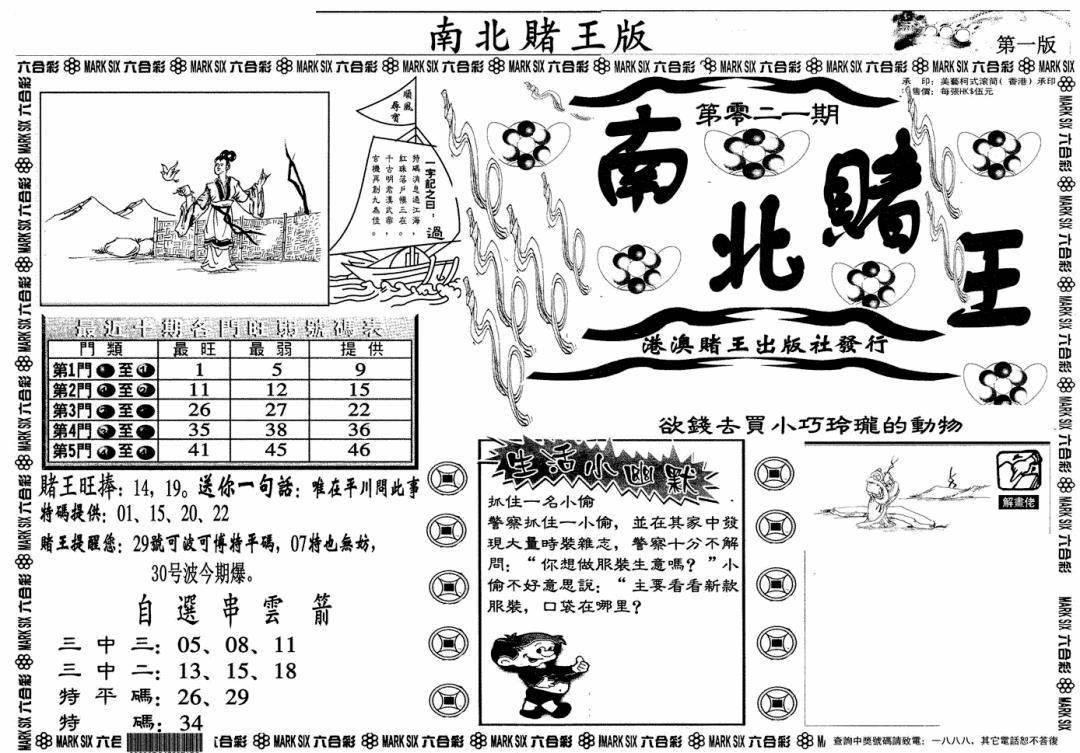 南北賭王版
第一版
六合彩 MARK SIX 六合彩 MARK SIX 六合彩 MARK SIX 六合彩 MARK SIX 六合彩 MARK SIX 六合彩 MARK SIX 六合彩 MARK SIX 六合彩 MARK SIX 六合彩 MARK SIX 六合彩 MARK SIX
承 印：美藝柯式滾筒(香港)承印
售價：每張HK$伍元
第零二一期
南北賭王
港澳賭王出版社發行
順風
尋寶
一字記之曰：過
特碼消息過江海，
紅珠落戶帳三在。
千古明君漢武帝，
玄機再創九為佳。
最近十期各門旺弱號碼表
門 類 最 旺 最 弱 提 供
第1門 至 1 5 9
第2門 至 11 12 15
第3門 至 26 27 22
第4門 至 35 38 36
第5門 至 41 45 46
賭王旺捧：14，19。送你一句話：唯在平川問此事
特碼提供：01、15、20、22
賭王提醒您：29號可波可博特平碼，07特也無妨，
30号波今期爆。
自 選 串 雲 箭
三 中 三：05、08、11
三 中 二：13、15、18
特 平 碼：26、29
特 碼：34
生活小幽默
抓住一名小偷
警察抓住一小偷，並在其家中發
現大量時裝雜志，警察十分不解
問：“你想做服裝生意嗎？”小
偷不好意思説：“主要看看新款
服裝，口袋在哪里？
欲錢去買小巧玲瓏的動物
解畫佬
MARK SIX 六合彩 MARK SIX 六合彩 MARK SIX 六合彩 MARK SIX 六合彩 MARK SIX 六合彩 MARK SIX 六合彩 MARK SIX 六合彩
查詢中獎號碼請致電：一八八八，其它電話恕不答復